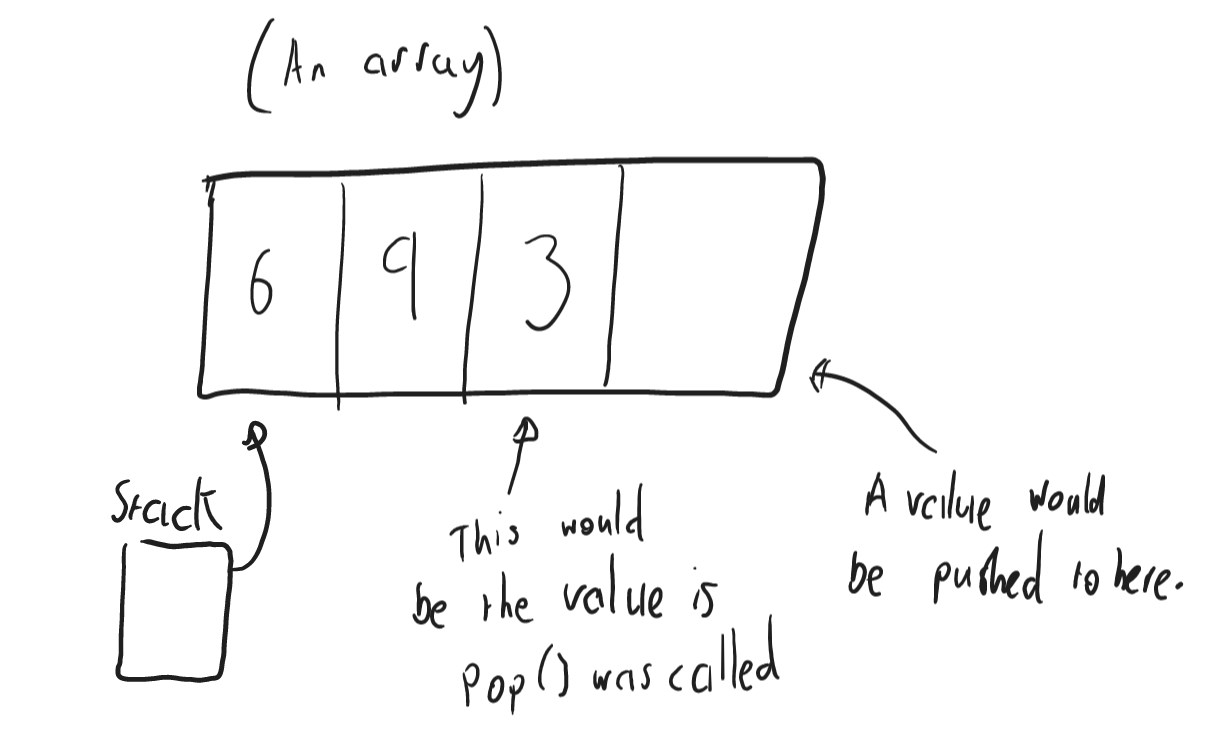 (An array)
6 9 3
Stack
This would
be the value is
Pop() was called
A value would
be pushed to here.